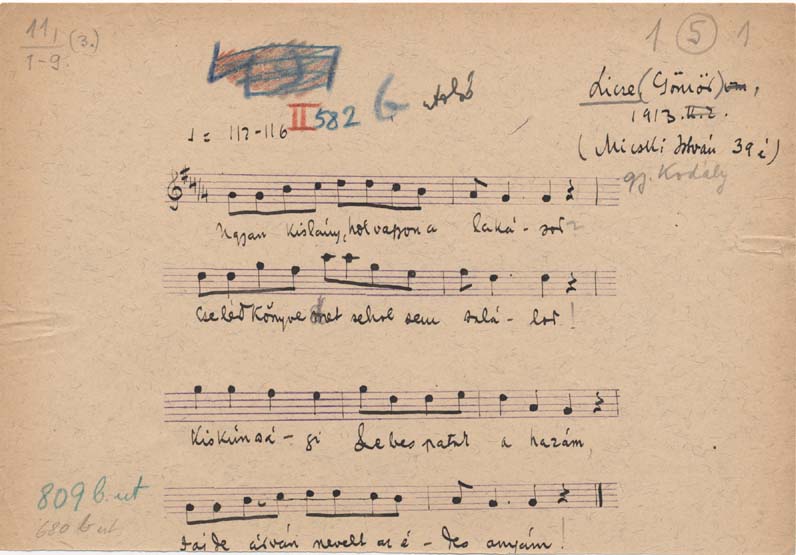 11, (3.)
1-9.
1 5 1
II 582 b
Licze (Gömör)
1913. II. 2.
(Micski István 39 é)
gy. Kodály
♩ = 112-116
Ugyan kislány, hol vagyon a laká - sod?
Cseléd könyve sehol sem talá - lod!
Kiskúnsá - gi Lebes patat a hazám,
nevelt az é - des anyám!
809 b. ut
680 b ut